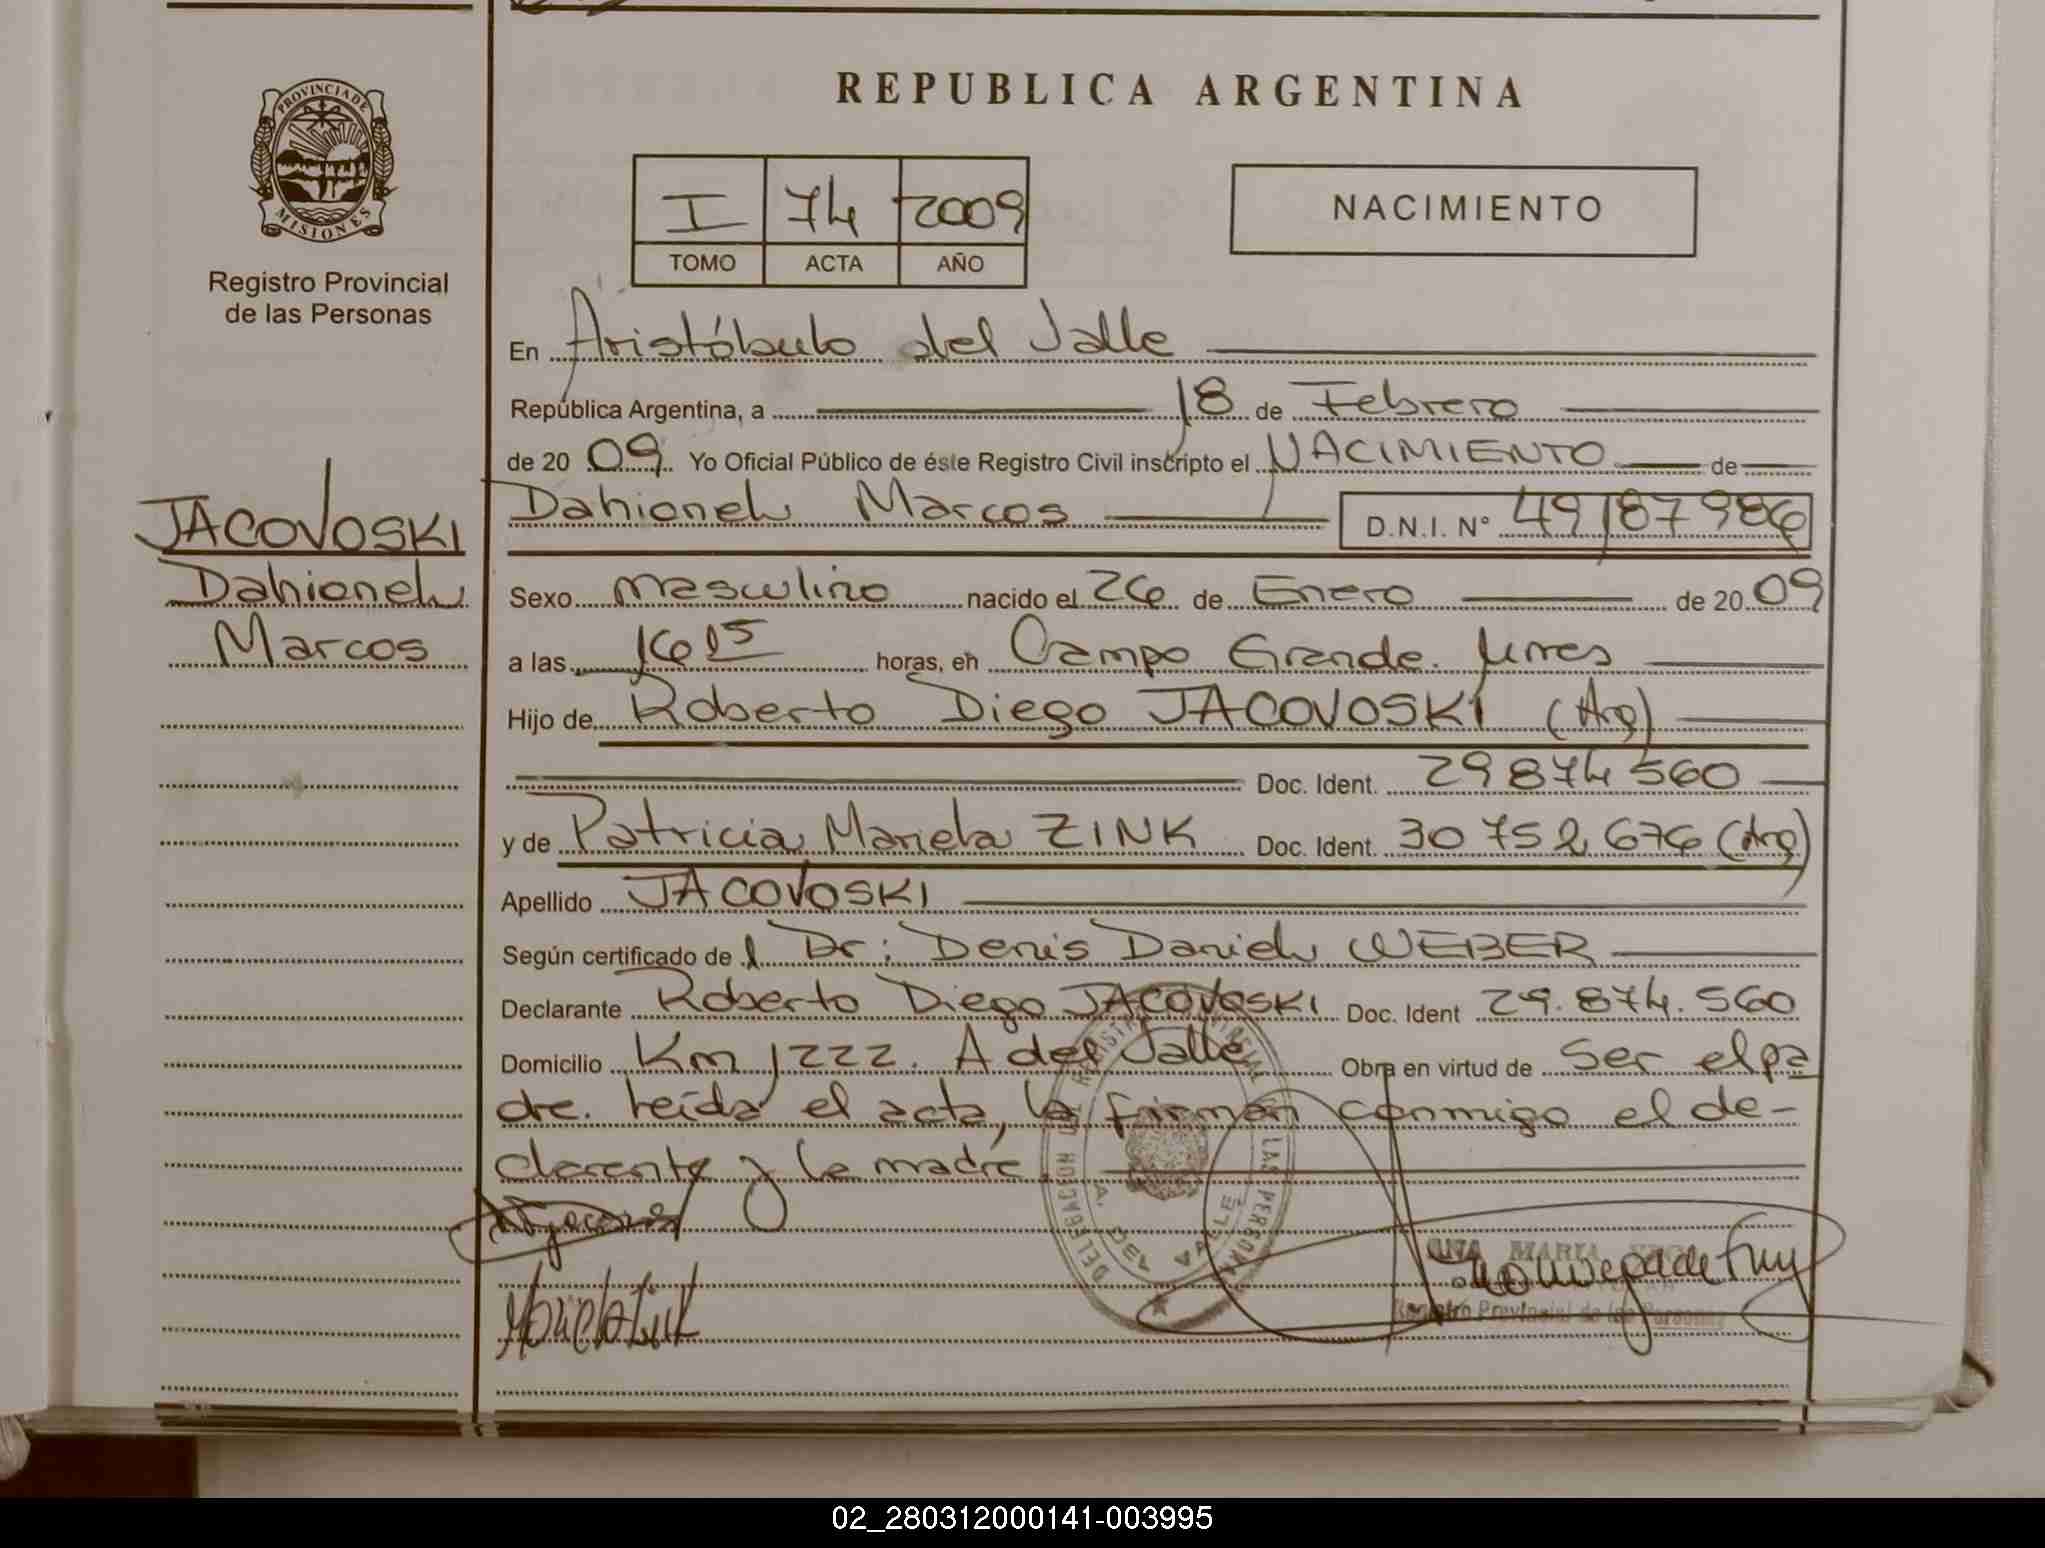 REPUBLICA ARGENTINA
PROVINCIA DE
MISIONES
Registro Provincial
de las Personas
I 74 2009
TOMO ACTA AÑO
NACIMIENTO
En Aristóbulo del Valle
República Argentina, a 18 de Febrero
de 20 09 Yo Oficial Público de éste Registro Civil inscripto el NACIMIENTO de
Dahionel Marcos D.N.I. N° 49187986
JACOVOSKI
Dahionel
Marcos
Sexo masculino nacido el 26 de Enero de 20 09
a las 16 15 horas, en Campo Grande. Mnes
Hijo de Roberto Diego JACOVOSKI (Arg)
Doc. Ident. 29874560
y de Patricia Mariela ZINK Doc. Ident. 30752676 (Arg)
Apellido JACOVOSKI
Según certificado del Dr: Denis Daniel WEBER
Declarante Roberto Diego JACOVOSKI Doc. Ident 29.874.560
Domicilio Km 1222. A del Valle Obra en virtud de ser el pa
dre. Leída el acta, la firman conmigo el de-
clarante y la madre.
DELEGACION DEL REGISTRO PROVINCIAL DE LAS PERSONAS
A. DEL VALLE
Mariela Zink
ANA MARIA
Registro Provincial de las Personas
02_280312000141-003995